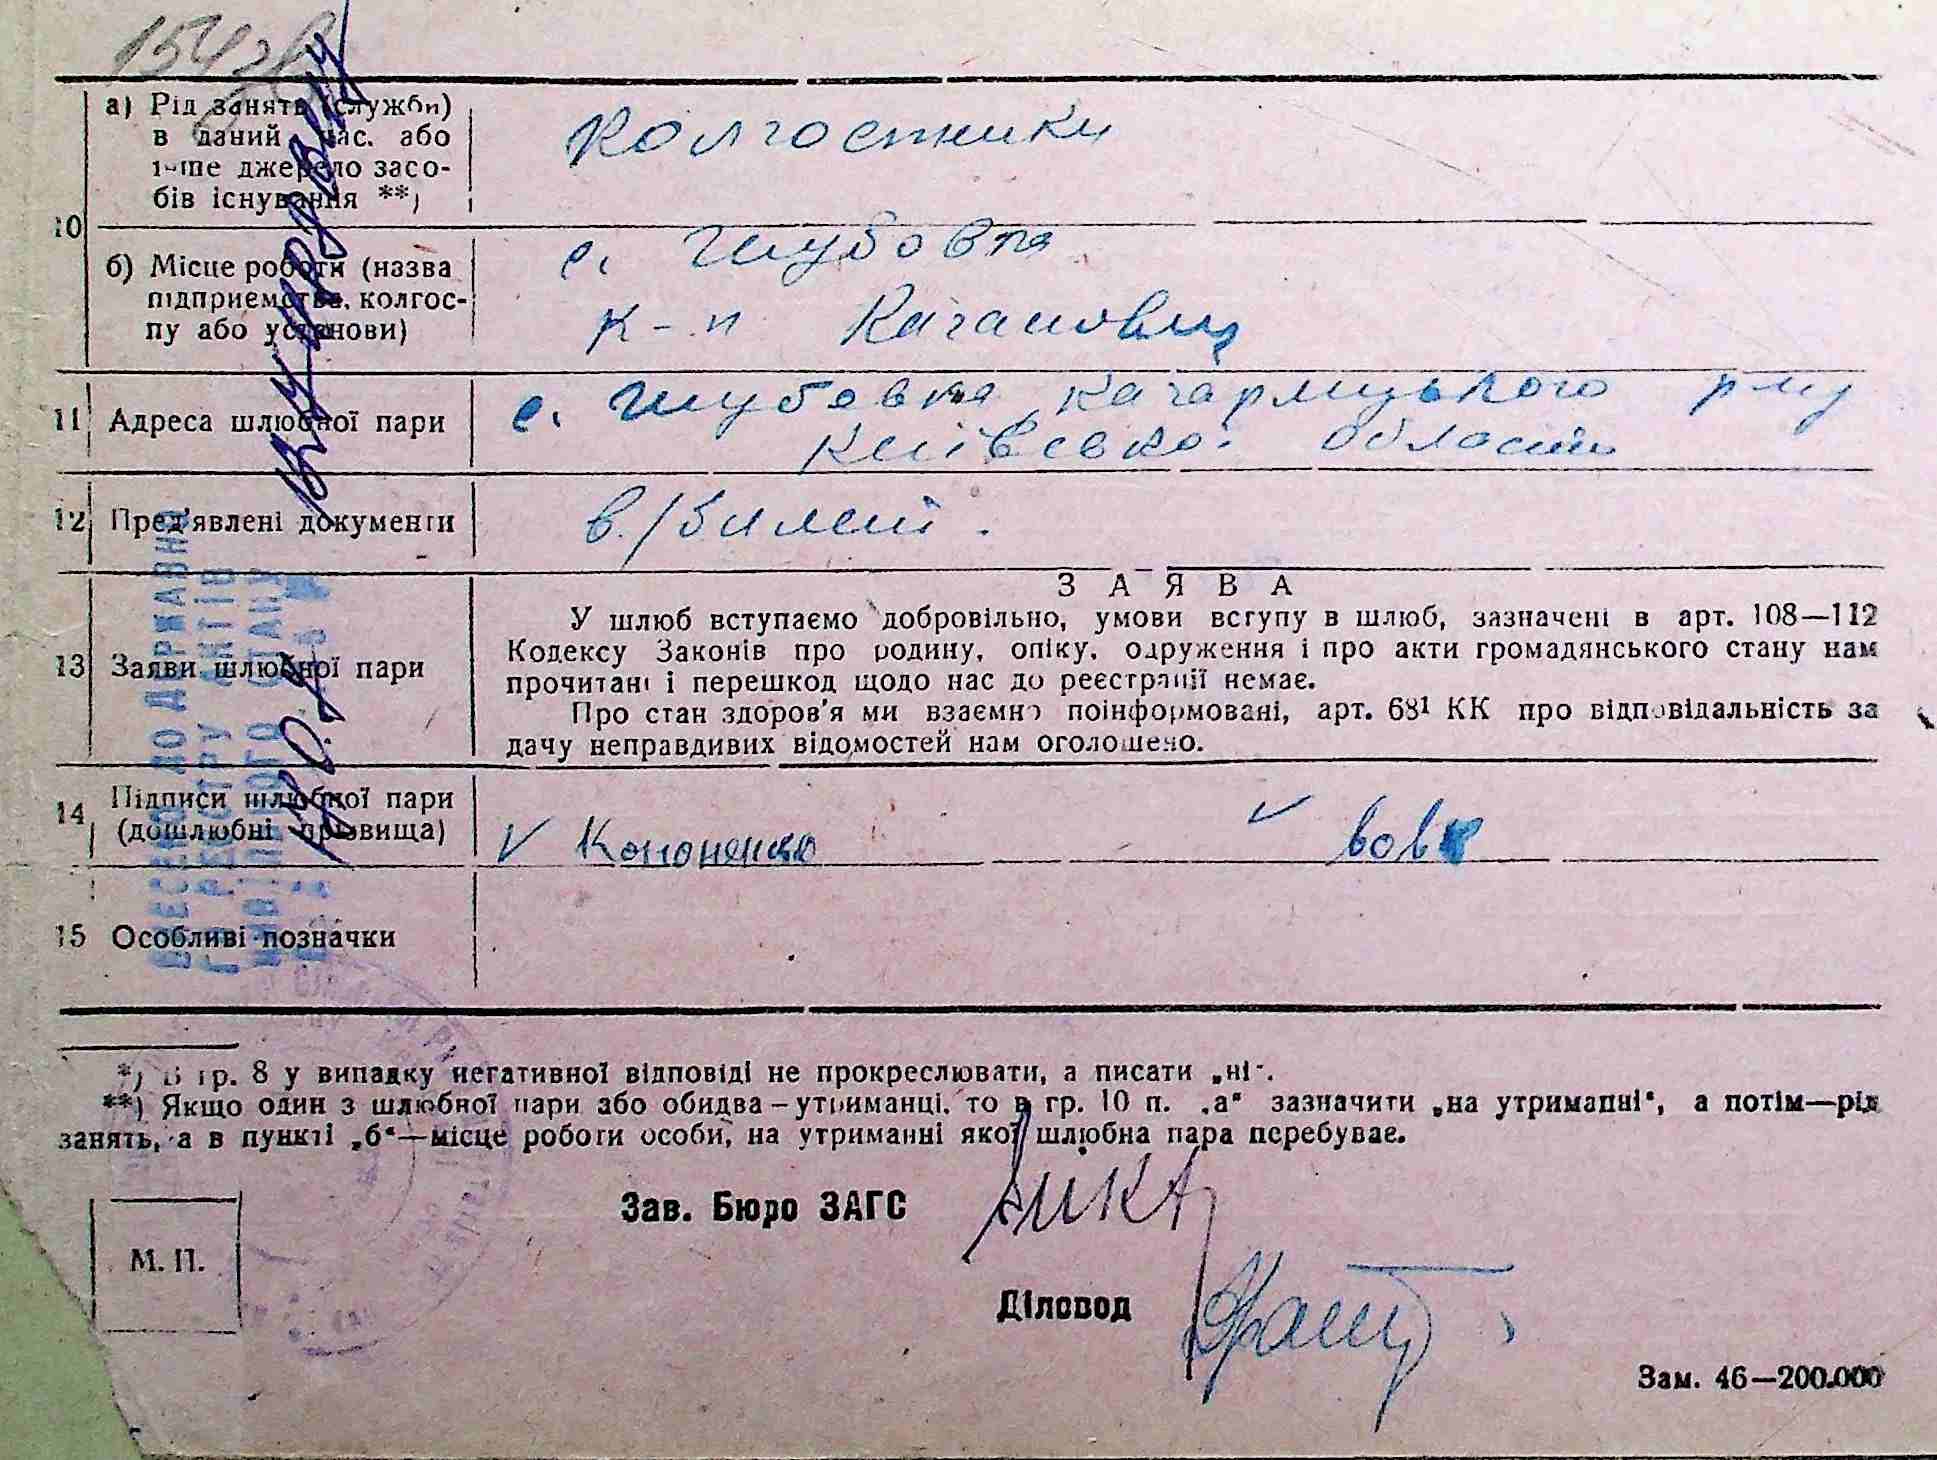 а) Рід занять (служби)
в даний час. або
інше джерело засо-
бів існування **)
Колгоспники
10
б) Місце роботи (назва
підприємства, колгос-
пу або установи)
с.
к-п Кагановича
11 Адреса шлюбної пари
с. Кагарлицького р-ну
Київської області
12 Пред'явлені документи
13 Заяви шлюбної пари
ЗАЯВА
У шлюб вступаємо добровільно, умови вступу в шлюб, зазначені в арт. 108—112
Кодексу Законів про родину, опіку, одруження і про акти громадянського стану нам
прочитані і перешкод щодо нас до реєстрації немає.
Про стан здоров'я ми взаємно поінформовані, арт. 68¹ КК про відповідальність за
дачу неправдивих відомостей нам оголошено.
14 Підписи шлюбної пари
(дошлюбні прізвища)
Кононенко Вовк
15 Особливі позначки
ВНЕСЕНО ДО ДЕРЖАВНОГО
РЕЄСТРУ АКТІВ
ЦИВІЛЬНОГО СТАНУ
*) В гр. 8 у випадку негативної відповіді не прокреслювати, а писати „ні".
**) Якщо один з шлюбної пари або обидва—утриманці, то в гр. 10 п. „а" зазначити „на утриманні", а потім—рід
занять, а в пункті „б"—місце роботи особи, на утриманні якої шлюбна пара перебуває.
Зав. Бюро ЗАГС
М. П.
Діловод
Зам. 46—200.000